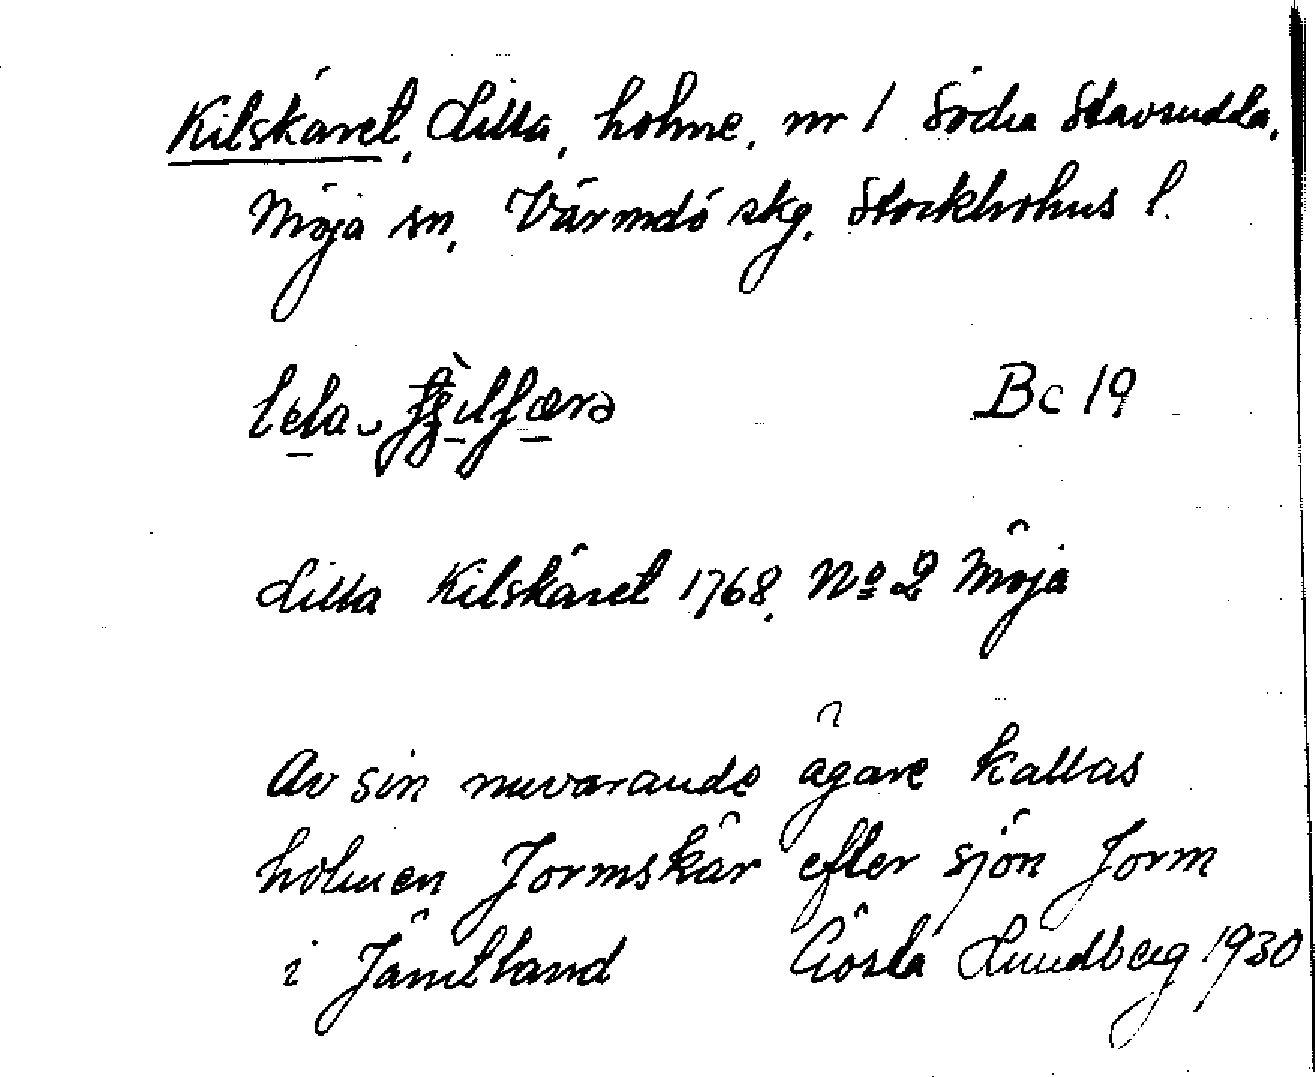 Kilskäret, Lilla, holme, nr 1 Södra Stavsudda,
Möja sn, Värmdö skg, Stockholms l.
Bc 19
Lilla Kilskäret 1768, No 2 Möja
Av sin nuvarande ägare kallas
holmen Jormskär efter sjön Jorm
i Jämtland Gösta Lundberg 1930